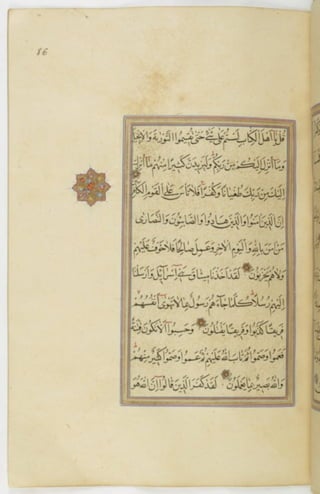 86
قُلْ يَا أَهْلَ الْكِتَابِ لَسْتُمْ عَلَىٰ شَيْءٍ حَتَّىٰ تُقِيمُوا التَّوْرَيٰةَ وَالْإِنْجِيلَ
وَمَا أُنْزِلَ إِلَيْكُمْ مِنْ رَبِّكُمْ وَلَيَزِيدَنَّ كَثِيرًا مِنْهُمْ مَا أُنْزِلَ
إِلَيْكَ مِنْ رَبِّكَ طُغْيَانًا وَكُفْرًا فَلَا تَأْسَ عَلَى الْقَوْمِ الْكَافِرِينَ
إِنَّ الَّذِينَ آمَنُوا وَالَّذِينَ هَادُوا وَالصَّابِئُونَ وَالنَّصَارَىٰ
مَنْ آمَنَ بِاللَّهِ وَالْيَوْمِ الْآخِرِ وَعَمِلَ صَالِحًا فَلَا خَوْفٌ عَلَيْهِمْ
وَلَا هُمْ يَحْزَنُونَ لَقَدْ أَخَذْنَا مِيثَاقَ بَنِي إِسْرَائِيلَ وَأَرْسَلْنَا
إِلَيْهِمْ رُسُلًا كُلَّمَا جَاءَهُمْ رَسُولٌ بِمَا لَا تَهْوَىٰ أَنْفُسُهُمْ
فَرِيقًا كَذَّبُوا وَفَرِيقًا يَقْتُلُونَ وَحَسِبُوا أَلَّا تَكُونَ فِتْنَةٌ
فَعَمُوا وَصَمُّوا ثُمَّ تَابَ اللَّهُ عَلَيْهِمْ ثُمَّ عَمُوا وَصَمُّوا كَثِيرٌ مِنْهُمْ
وَاللَّهُ بَصِيرٌ بِمَا يَعْمَلُونَ لَقَدْ كَفَرَ الَّذِينَ قَالُوا إِنَّ اللَّهَ هُوَ